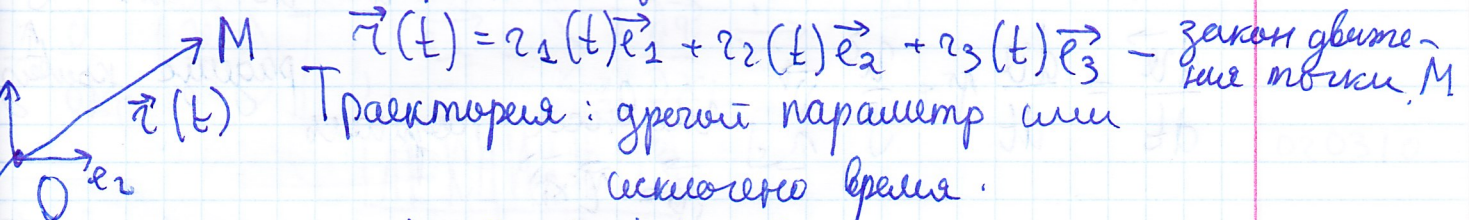 M
r⃗(t) = r₁(t)e⃗₁ + r₂(t)e⃗₂ + r₃(t)e⃗₃ – закон движе-
ния точки M
r⃗(t)
Траектория: другой параметр или
исключено время.
O e₂